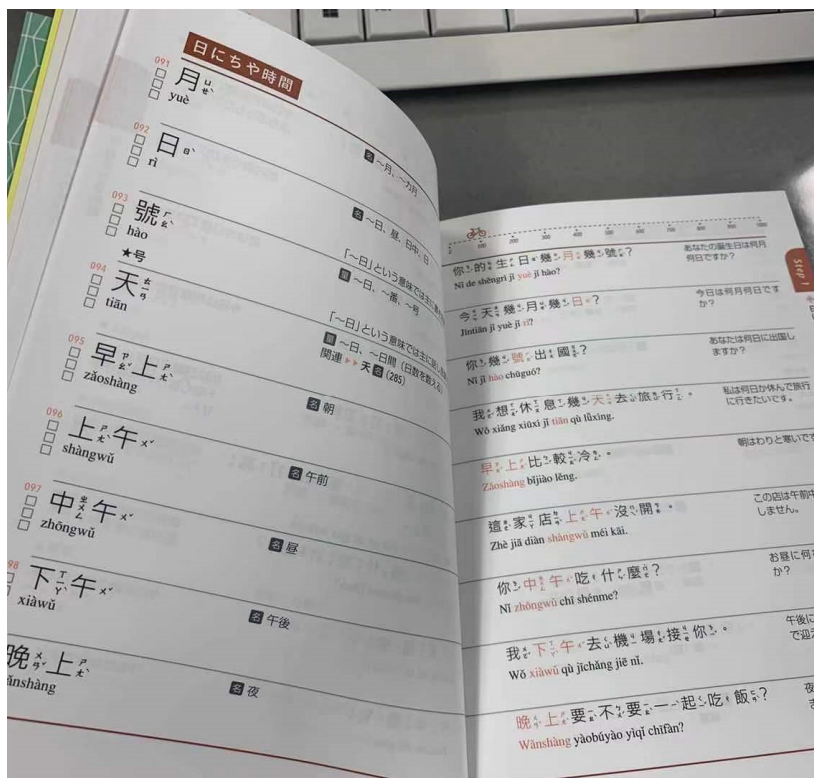 日にちや時間
091
月 ㄩㄝˋ
yuè
名 ～月、～カ月
092
日 ㄖˋ
rì
名 ～日、昼、日中、日
093
號 ㄏㄠˋ
hào
★号
「～日」という意味では主に
量 ～日、～番、～号
094
天 ㄊㄧㄢ
tiān
「～日」という意味では主に話し
量 ～日、～日間（日数を数える）
関連 ▶▶ 天 名 (285)
095
早ㄗㄠˇ上ㄕㄤˋ
zǎoshàng
名 朝
096
上ㄕㄤˋ午ㄨˇ
shàngwǔ
名 午前
097
中ㄓㄨㄥ午ㄨˇ
zhōngwǔ
名 昼
98
下ㄒㄧㄚˋ午ㄨˇ
xiàwǔ
名 午後
晚ㄨㄢˇ上ㄕㄤˋ
ǎnshàng
名 夜
100 200 300 400 500 600 700 800 900 1000
Step 1
你的生日幾月幾號？
Nǐ de shēngrì jǐ yuè jǐ hào?
あなたの誕生日は何月
何日ですか？
今天幾月幾日？
Jīntiān jǐ yuè jǐ rì?
今日は何月何日です
か？
你幾號出國？
Nǐ jǐ hào chūguó?
あなたは何日に出国し
ますか？
我想休息幾天去旅行。
Wǒ xiǎng xiūxí jǐ tiān qù lǚxíng.
私は何日か休んで旅行
に行きたいです。
早上比較冷。
Zǎoshàng bǐjiào lěng.
朝はわりと寒いです
這家店上午沒開。
Zhè jiā diàn shàngwǔ méi kāi.
この店は午前中
しません。
你中午吃什麼？
Nǐ zhōngwǔ chī shénme?
お昼に何
か？
我下午去機場接你。
Wǒ xiàwǔ qù jīchǎng jiē nǐ.
午後に
で迎え
晚上要不要一起吃飯？
Wǎnshàng yàobúyào yìqǐ chīfàn?
夜